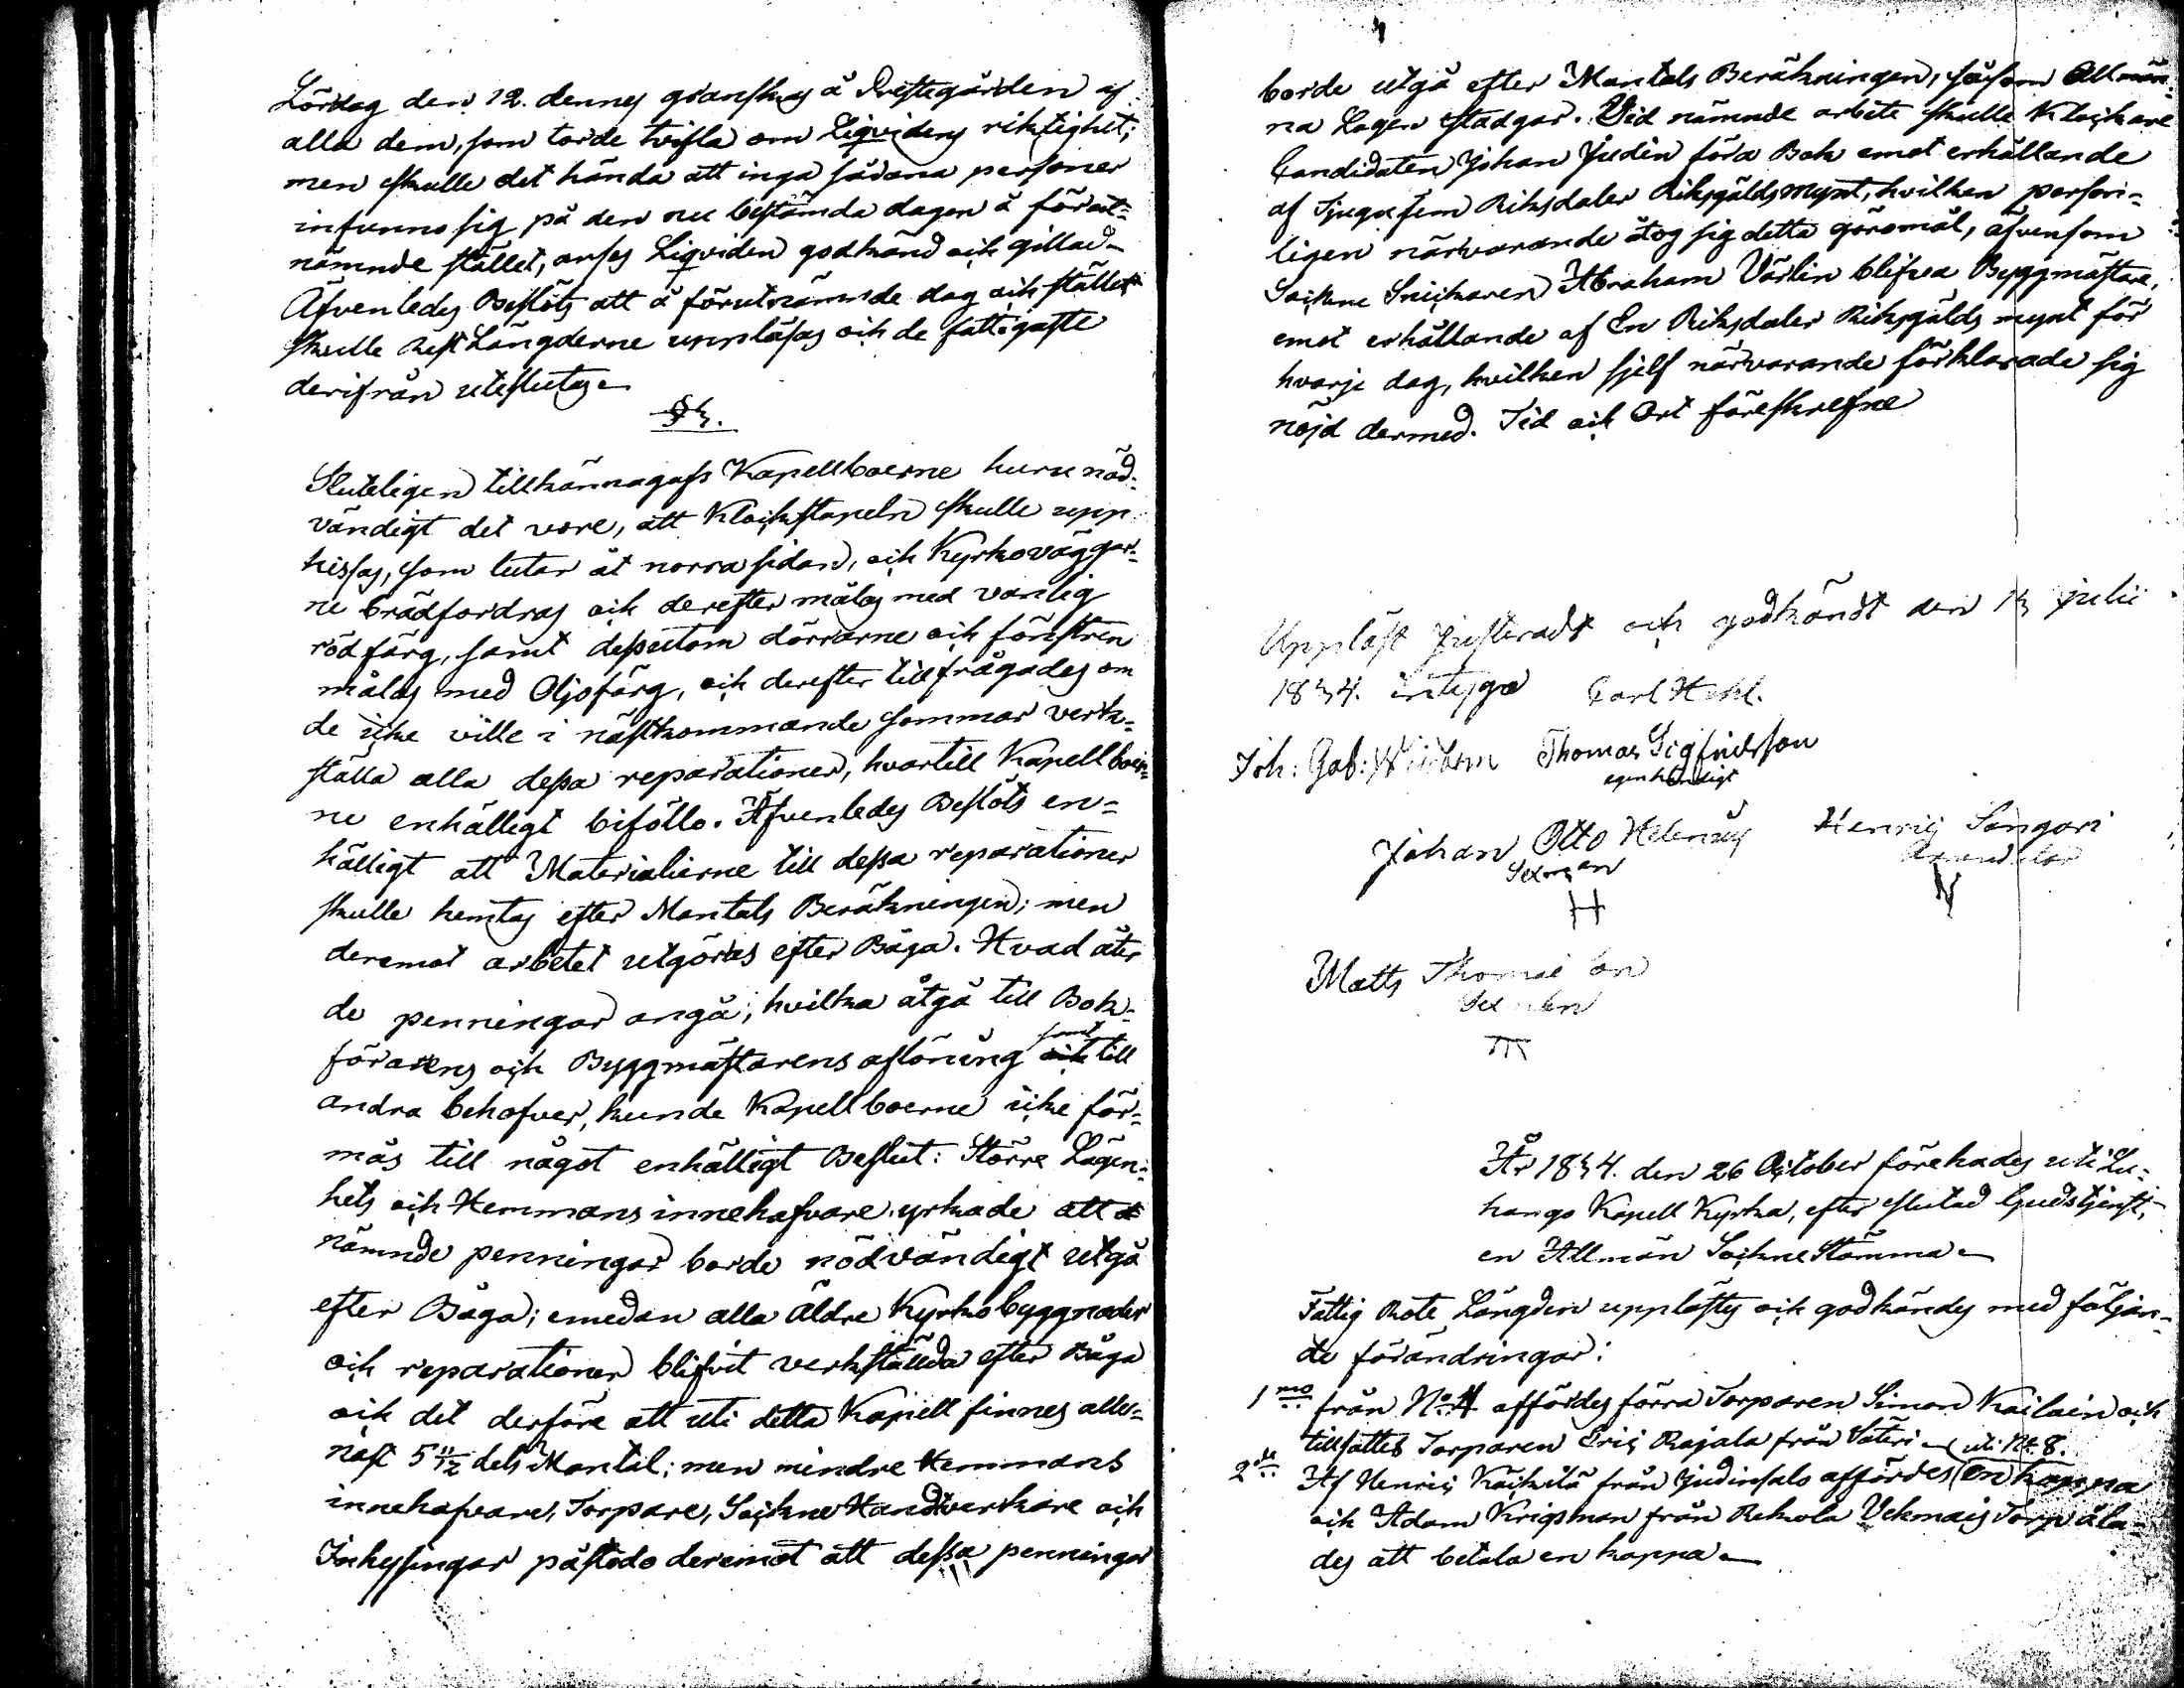 Lördag den 12. dennes granskas å Prestegården af
alla dem, som torde tvifla om Liqvidens riktighet;
men skulle det hända att inga sådana personer
infunno sig på den nu bestämda dagen å förut-
nämnde stället, anses Liqviden godkänd och gillad
Äfvenledes Beslöts att å förutnämnde dag och stället
skulle Rest Längderne uppläsas och de fattigaste
derifrån uteslutas
§ 3.
Sluteligen tillkännagafs Kapellboerne huru nöd-
vändigt det vore, att Klockstapeln skulle upp
hissas, som lutar åt norra sidan, och Kyrkoväggar-
ne brädfordras och derefter målas med vanlig
röd färg, samt dessutom dörrarne och fönstren
målas med Oljofärg, och derefter tillfrågades om
de icke ville i nästkommande sommar verk-
ställa alla dessa reparationer, hvartill Kapellboer-
ne enhälligt biföllo. Äfvenledes Beslöts en-
hälligt att Materialierne till dessa reparationer
skulle hemtas efter Mantals Beräkningen; men
deremot arbetet utgöras efter Båga. Hvad åter
de penningar angå, hvilka åtgå till Bok-
förarens och Byggmästarens aflöning samt till
andra behofver, kunde Kapellboerne icke för-
mås till något enhälligt Beslut: Större Lägen-
hets och Hemmans innehafvare yrkade att
nämnde penningar borde nödvändigt utgå
efter Båga; emedan alla äldre Kyrkobyggnader
och reparationer blifvit verkställda efter Båga
och det derföre att uti detta Kapell finnes alle-
nast 5 11/12 dels Mantal; men mindre Hemmans
innehafvare, Torpare, Sockne Handtverkare och
Inhysingar påstodo deremot att dessa penningar
borde utgå efter Mantals Beräkningen, såsom Allmän-
na Lagen stadgar. Vid nämnde arbete skulle Klockare
Candidaten Johan Judin föra Bok emot erhållande
af Tjugufem Riksdaler Riksgäldsmynt, hvilken person-
ligen närvarande åtog sig detta göromål, äfvensom
Sockne Snickaren Abraham Vårlin blifva Byggmästare,
emot erhållande af En Riksdaler Riksgälds mynt för
hvarje dag, hvilken sjelf närvarande förklarade sig
nöjd dermed. Tid och Ort föreskrefne
Uppläst Justeradt och godkändt den 13 julii
1834. intyga Carl Hehl.
Joh: Gab: Thomas Sigfridsson
egenhändigt
Johan Otto Helenius Henric Sangari
Sexman
H N
Matts Thomasson
Sexman
År 1834. den 26 October förehades uti Lu-
hango Kapell Kyrka, efter slutad Gudstjenst,
en Allmän Sockne Stämma
Fattig Rote Längden upplästes och godkändes med följan-
de förändringar:
1mo från No 4 affördes förra Torparen Simon Kailain och
tillsattes Torparen Eric Rajala från Säteri uti No. 8.
2do Af Henric Käckelä från Judinsalo affördes en kappa
och Adam Krigsman från Rekola Vehmais Torp åla-
des att betala en kappa